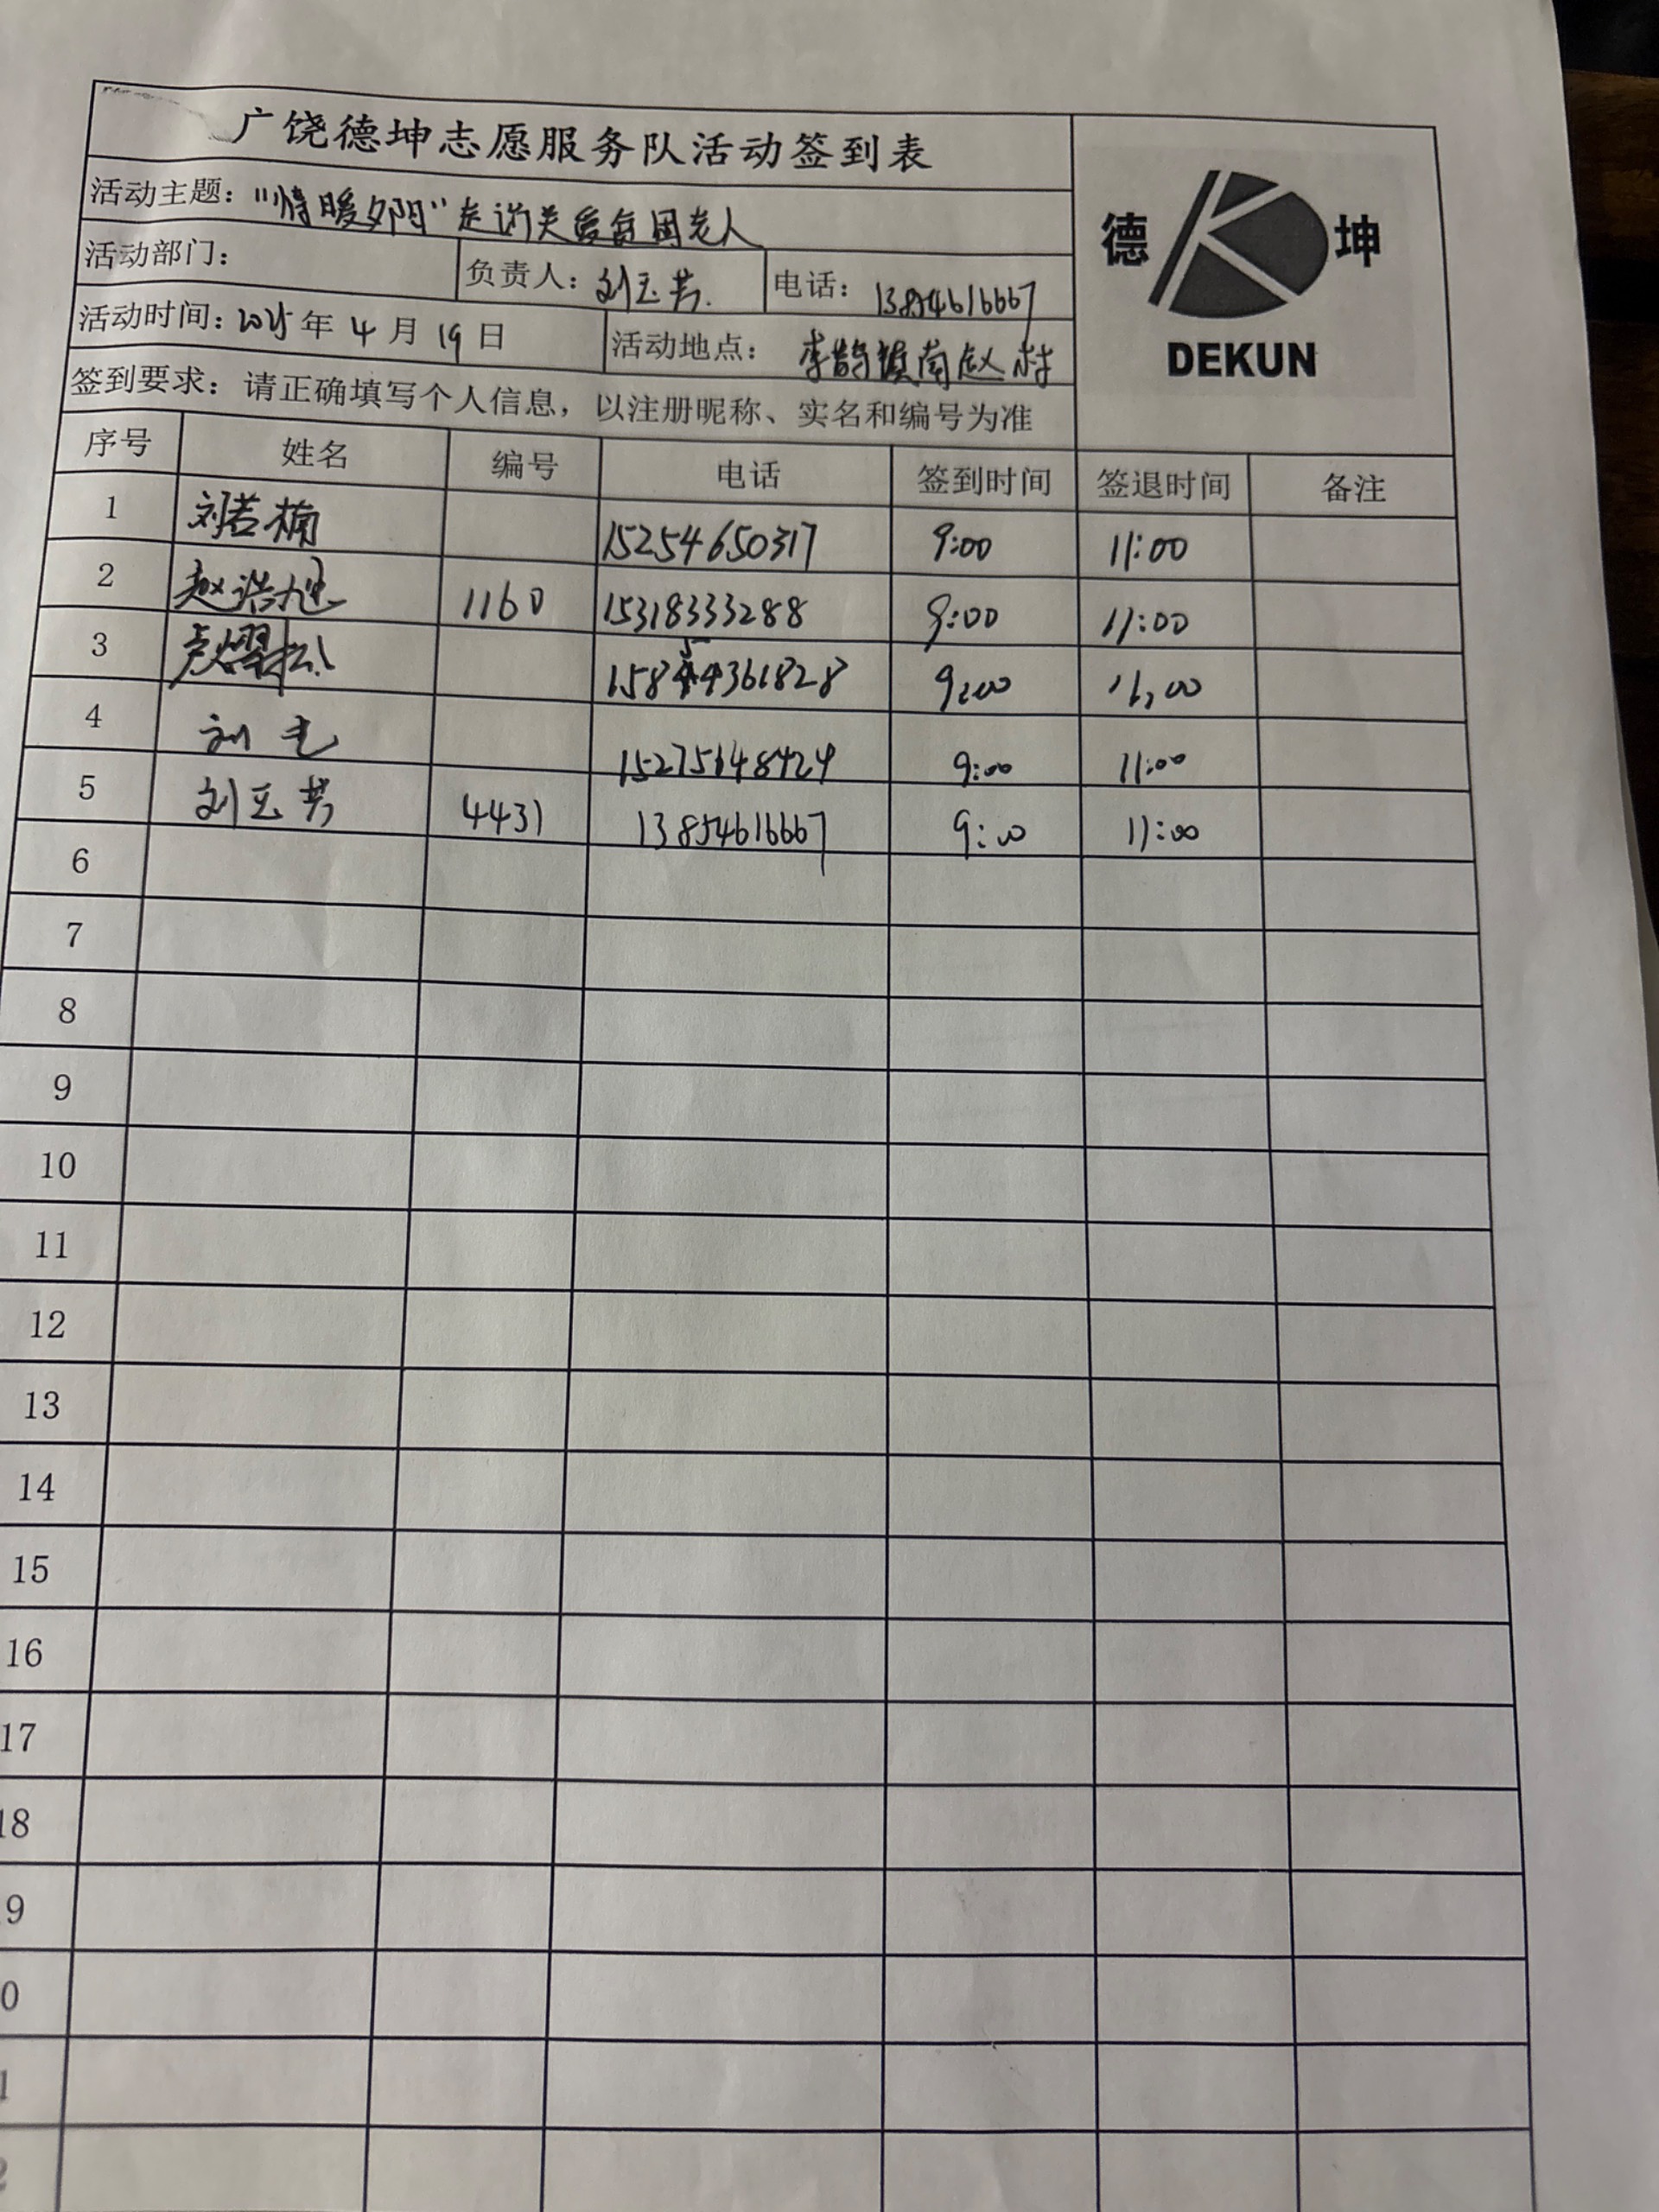 广饶德坤志愿服务队活动签到表
活动主题："情暖夕阳"走访关爱贫困老人
活动部门： 负责人：刘玉芳. 电话：13854616667
活动时间：2025年4月19日 活动地点：李鹊镇南赵村
签到要求：请正确填写个人信息，以注册昵称、实名和编号为准
德 坤
DEKUN
序号 姓名 编号 电话 签到时间 签退时间 备注
1 刘若楠 15254650317 9:00 11:00
2 赵浩旭 1160 15318333288 9:00 11:00
3 9:00 11:00
4 刘 15275648424 9:00 11:00
5 刘玉芳 4431 13854616667 9:00 11:00
6
7
8
9
10
11
12
13
14
15
16
17
18
9
0
1
2